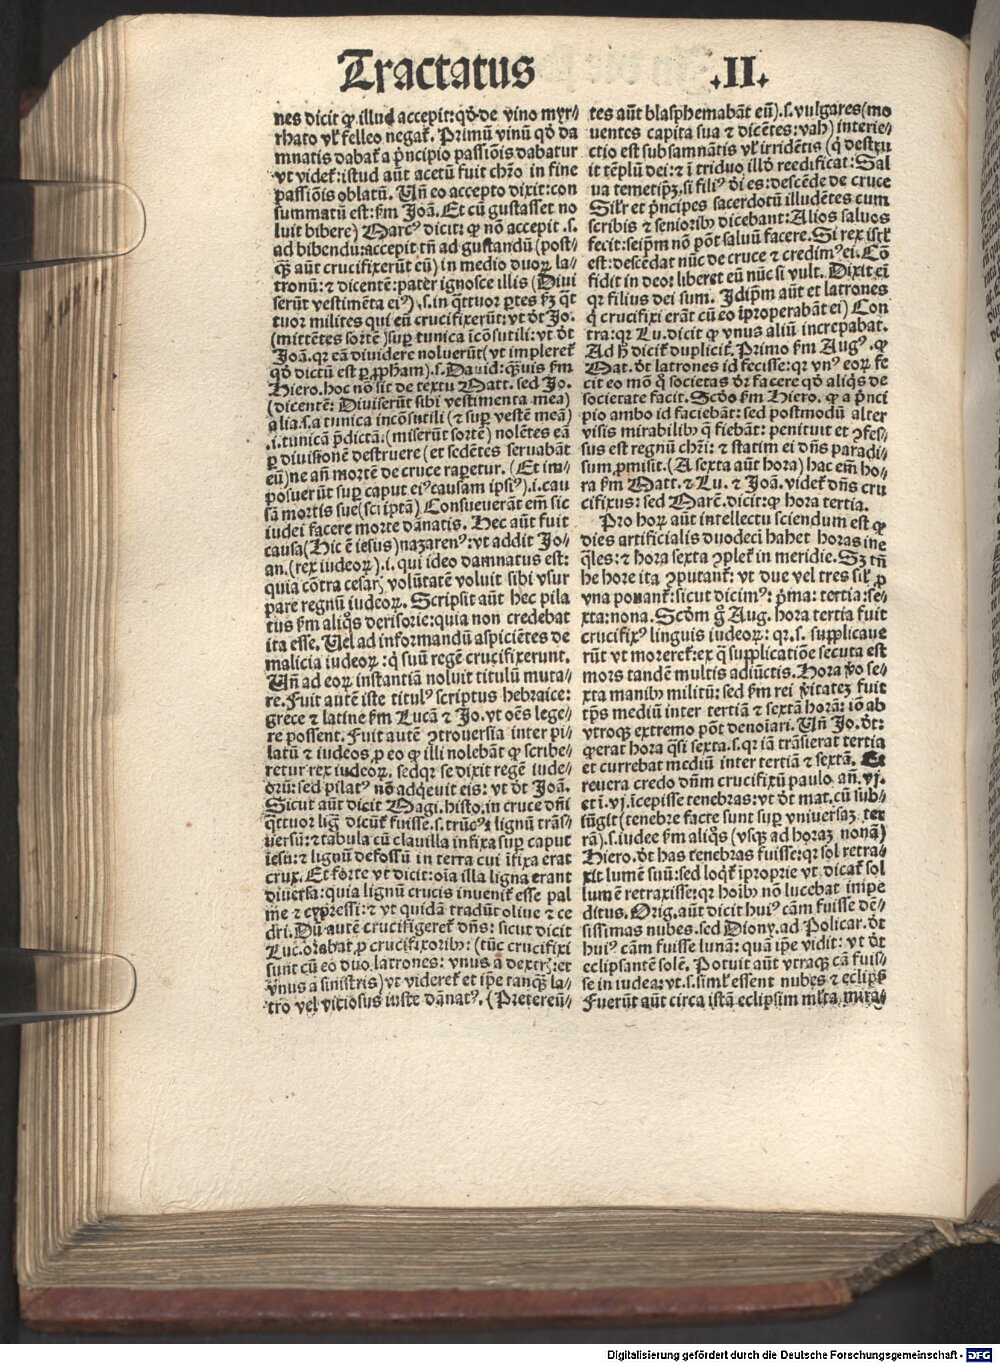 Tractatus .II.
nes dicit ꝙ illud accepit: qđ de vino myr⸗
rhato vł felleo negat̃. Primū vinū qđ da
mnatis dabat̃ a p̃ncipio passiōis dabatur
vt videt̃: istud aūt acetū fuit chr̃o in fine
passiōis oblatū. Uñ eo accepto dixit: con
summatū est: s̃m Joā. Et cū gustasset no
luit bibere) Marcꝰ dicit: ꝙ nō accepit .s.
ad bibendū: accepit tñ ad gustandū (post⸗
q̃ꝫ aūt crucifixerūt eū) in medio duoꝝ la⸗
tronū: ⁊ dicentē: pater ignosce illis (Divi
serūt vestimēta eiꝰ) .s. in q̃ttuor ꝑtes s̃m q̃t
tuor milites qui eū crucifixerūt: vt d̃t Jo.
(mittētes sortē) suꝑ tunica īcōsutili: vt d̃t
Joā. qr eā dividere noluerūt (vt impleret̃
qđ dictū est ꝑ ꝓpham) .s. David: q̃ꝫuis s̃m
Hiero. hoc nō sit de textu Matt. sed Jo.
(dicentē: Diviserūt sibi vestimenta mea)
alia .s. a tunica incōsutili (⁊ suꝑ vestē meā)
.i. tunicā p̃dictā: (miserūt sortē) nolētes eā
ꝑ divisionē destruere (et sedētes servabāt
eū) ne añ mortē de cruce raperetur. (Et im⸗
posuerūt suꝑ caput eiꝰ causam ipsiꝰ) .i. cau
sā mortis sue (scriptā) Consueverāt em̃ sic
iudei facere morte dānatis. Hec aūt fuit
causa (Hic ē iesus) nazarenꝰ: vt addit Jo⸗
an. (rex iudeoꝝ) .i. qui ideo damnatus est:
quia cōtra cesarꝭ volūtatē voluit sibi vsur
pare regnū iudeoꝝ. Scripsit aūt hec pila
tus s̃m aliq̃s derisorie: quia non credebat
ita esse. Uel ad informandū aspiciētes de
malicia iudeoꝝ: q̃ suū regē crucifixerunt.
Uñ ad eoꝝ instantiā noluit titulū muta⸗
re. Fuit autē iste titulꝰ scriptus hebraice:
grece ⁊ latine s̃m Lucā ⁊ Jo. vt oēs lege⸗
re possent. Fuit autē ꝯtroversia inter pi⸗
latū ⁊ iudeos ꝓ eo ꝙ illi nolebāt ꝙ scribe⸗
retur rex iudeoꝝ. sed qr se dixit regē iude⸗
orū: sed pilatꝰ nō adq̃evit eis: vt d̃t Joā.
Sicut aūt dicit Magi. histo. in cruce dñi
q̃ttuor lignꝭ dicūt̃ fuisse .s. trūcꝰ ⁊ lignū trās⸗
versū: ⁊ tabula cū clavilla infixa suꝑ caput
iesu: ⁊ lignū defossū in terra cui īfixa erat
crux. Et forte vt dicit: oīa illa ligna erant
diversa: quia lignū crucis invenit̃ esse pal
me ⁊ cypressi: ⁊ vt quidā tradūt olive ⁊ ce
dri. Dū autē crucifigeret̃ dñs: sicut dicit
Luc. orabat ꝓ crucifixoribꝫ: (tūc crucifixi
sunt cū eo duo latrones: vnus a dextrꝭ: et
vnus a sinistris) vt videret̃ et ip̃e tanq̃ꝫ la⸗
tro vel vitiosus iuste dānatꝰ. (Pretereū⸗
tes aūt blasphemabāt eū) .s. vulgares (mo
ventes capita sua ⁊ dicētes: vah) interie⸗
ctio est subsannātis vł irridētis (q̃ destru
it tēplū dei: ⁊ ī triduo illđ reedificat: Sal
va temetip̃ꝫ. si filiꝰ d̃i es: descēde de cruce
Sił̃r et p̃ncipes sacerdotū illudētes cum
scribis ⁊ senioribꝫ dicebant: Alios salvos
fecit: seip̃m nō pōt salvū facere. Si rex isr̃l
est: descēdat nūc de cruce ⁊ credimꝰ ei. Cō
fidit in deo: liberet eū nūc si vult. Dixit em̃
qr filius dei sum. Jdip̃m aūt et latrones
q̃ crucifixi erāt cū eo īproperabāt ei) Con
tra: qr Lu. dicit ꝙ vnus aliū increpabat.
Ad h̃ dicit̃ duplicit̃. Primo s̃m Augꝰ. ꝙ
Mat. d̃t latrones id fecisse: qr vnꝰ eoꝝ fe
cit eo mō q̃ societas d̃r facere qđ aliq̃s de
societate facit. Scđo s̃m Hiero. ꝙ a p̃nci
pio ambo id faciebāt: sed postmodū alter
visis mirabilibꝫ q̃ fiebāt: penituit et ꝯfes⸗
sus est regnū chr̃i: ⁊ statim ei dñs paradi⸗
sum ꝓmisit. (A sexta aūt hora) hac em̃ ho⸗
ra s̃m Matt. ⁊ Lu. ⁊ Joā. videt̃ dñs cru
cifixus: sed Marc̃. dicit: ꝙ hora tertia.
Pro horꝝ aūt intellectu sciendum est ꝙ
dies artificialis duodecī habet horas ine
q̃les: ⁊ hora sexta ꝯplet̃ in meridie. Sꝫ tñ
he hore ita ꝯputant̃: vt due vel tres sił ꝓ
vna ponant̃: sicut dicimꝰ: p̃ma: tertia: se⸗
xta: nona. Scđm g̃ Aug. hora tertia fuit
crucifixꝰ linguis iudeoꝝ: qr .s. supplicave
rūt vt moreret̃: ex q̃ supplicatiōe secuta est
mors tandē multis adiūctis. Hora ꝟo se⸗
xta manibꝫ militū: sed s̃m rei ꝟitateꝫ fuit
tp̃s mediū inter tertiā ⁊ sextā horā: iō ab
vtroqꝫ extremo pōt denoīari. Uñ Jo. d̃t:
ꝙ erat hora q̃si sexta .s. qr iā trāsierat tertia
et currebat mediū inter tertiā ⁊ sextā. Et
revera credo dñm crucifixū paulo añ .vj.
et ī .vj. īcepisse tenebras: vt d̃t mat. cū sub⸗
iūgit (tenebre facte sunt suꝑ vniversaꝫ ter
rā) .s. iudee s̃m aliq̃s (vsqꝫ ad horaꝫ nonā)
Hiero. d̃t has tenebras fuisse: qr sol retra⸗
xit lumē suū: sed loq̃t̃ īproprie vt dicat̃ sol
lumē retraxisse: qr hoībꝫ nō lucebat impe
ditus. Orig. aūt dicit huiꝰ cām fuisse dē⸗
sissimas nubes. sed Diony. ad Policar. d̃t
huiꝰ cām fuisse lunā: quā ip̃e vidit: vt d̃t
eclipsantē solē. Potuit aūt vtraqꝫ cā fuis⸗
se in iudea: vt .s. siml̃ essent nubes ⁊ eclipsꝭ
Fuerūt aūt circa istā eclipsim ml̃ta mira⸗
Digitalisierung gefördert durch die Deutsche Forschungsgemeinschaft - DFG